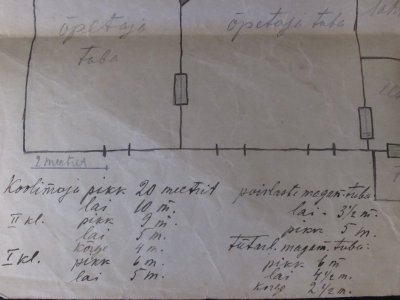 õpetaja
tuba
õpetaja tuba
2 meetrit
Koolimaja pikk 20 meetrit
lai 10 m
II kl. pikk 9 m
lai 5 m.
kõrge 4 m.
I kl. pikk 6 m.
lai 5 m.
poislaste magam. tuba:
lai - 3½ m.
pikk 5 m.
tütarl. magam. tuba:
pikk 6 m
lai 4½ m.
kõrge 2½ m.